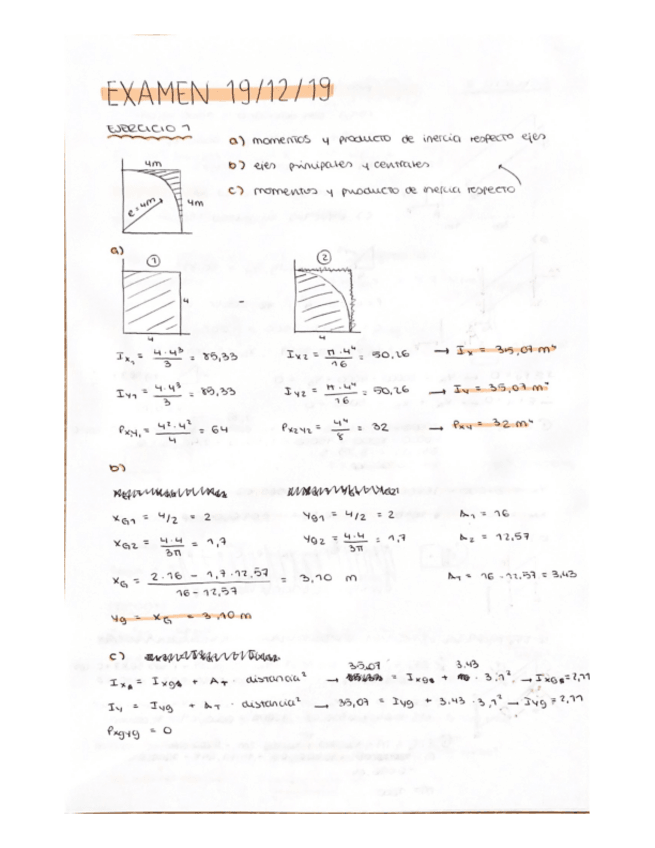 EXAMEN 19/12/19
EJERCICIO 1
a) momentos y producto de inercia respecto ejes
b) ejes principales y centrales
c) momentos y producto de inercia respecto
4m
R=4m
4m
a)
1
2
4
-
4
4
Ix₁ = 4·4³/3 = 85,33
Ix2 = π·4⁴/16 = 50,26
→ Ix = 35,07 m⁴
Iy1 = 4·4³/3 = 85,33
Iy2 = π·4⁴/16 = 50,26
→ Iy = 35,07 m⁴
Pxy₁ = 4²·4²/4 = 64
Px2y2 = 4⁴/8 = 32
→ Pxy = 32 m⁴
b)
xG1 = 4/2 = 2
yG1 = 4/2 = 2
A1 = 16
xG2 = 4·4/3π = 1,7
yG2 = 4·4/3π = 1,7
A2 = 12,57
xG = 2·16 - 1,7·12,57/16-12,57 = 3,10 m
AT = 16 - 12,57 = 3,43
yg = xG = 3,10 m
c)
35,07
3.43
= IxGs + AT · distancia² →
= IxGs +
· 3,1² →
Iy = Iyg + AT · distancia² → 35,07 = Iyg + 3.43 · 3,1² → Iyg = 2,11
Pxgyg = 0